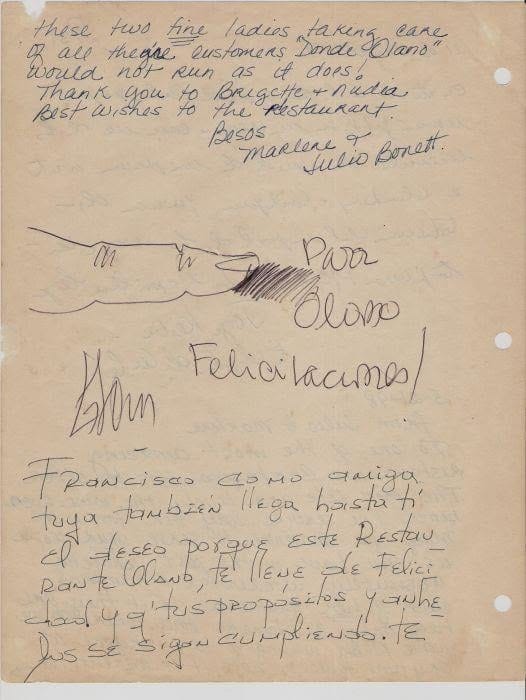 these two fine ladies taking care
of all the customers, "Donde Olano"
would not run as it does!
Thank you to Brigette & Nudia
Best wishes to the restaurant.
Besos
Marlene &
Julio Bonett.
Para
Olano
Felicitaciones!
Francisco como amiga
tuya también llega hasta tí
el deseo porque este Restau-
rante Olano, te llene de Felici-
dad y q' tus propósitos y anhe-
los se sigan cumpliendo. te